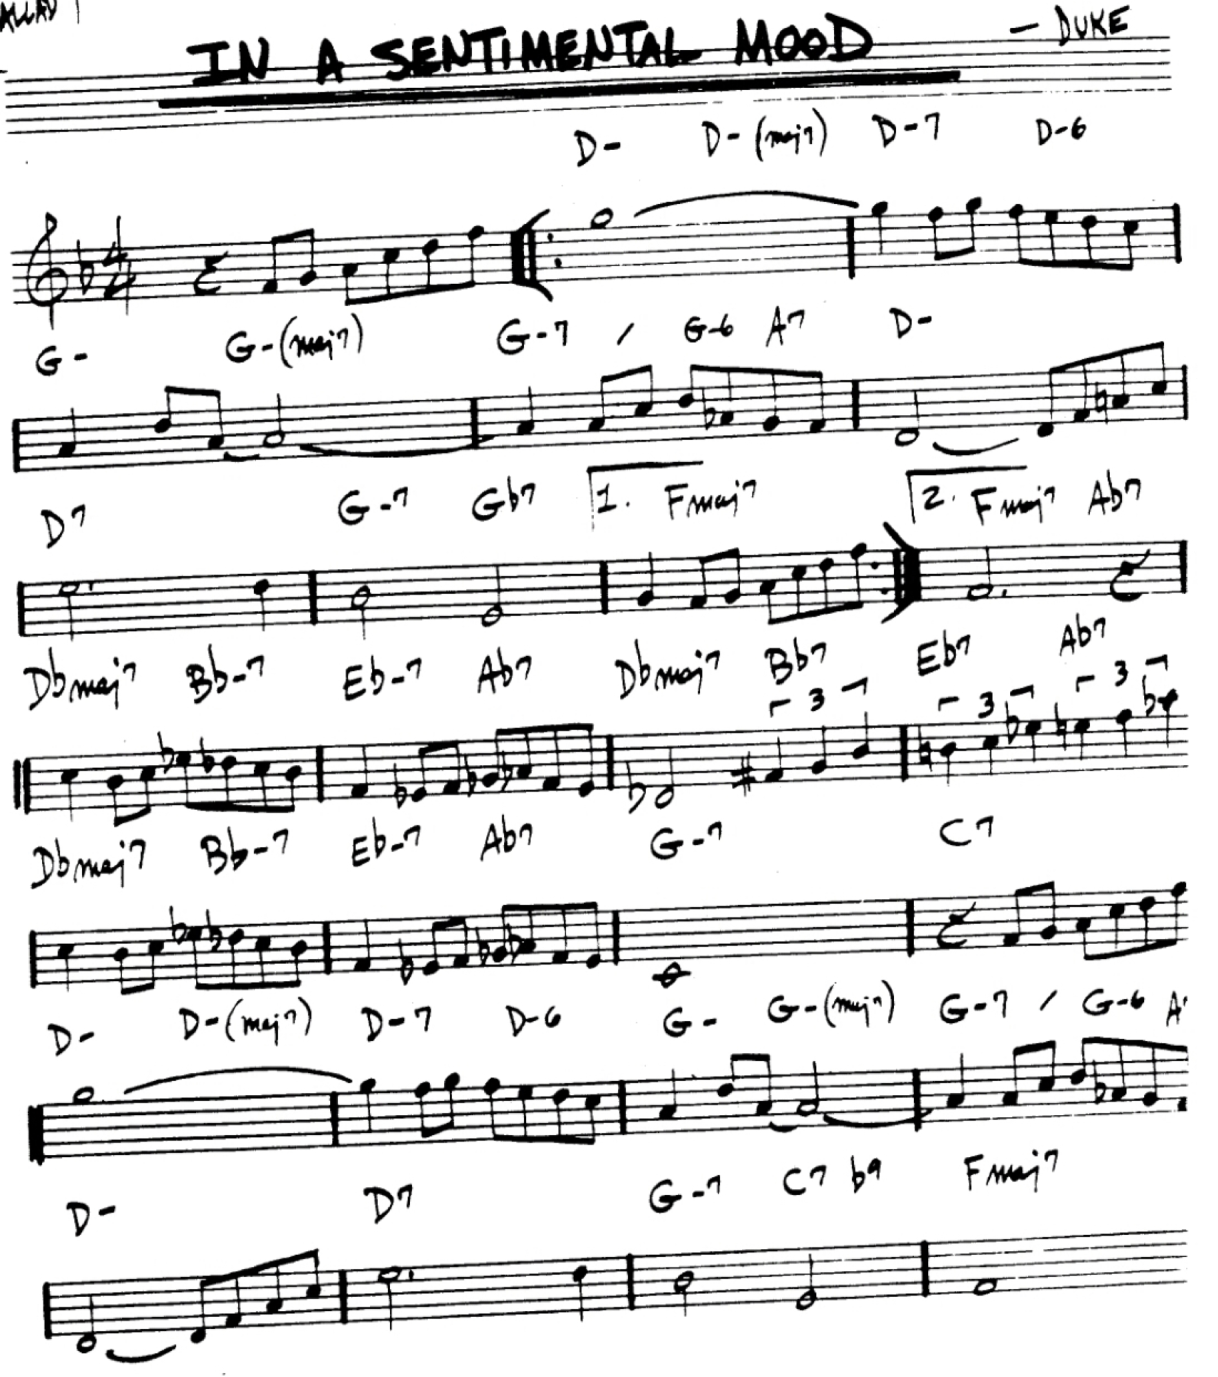 BALLAD
IN A SENTIMENTAL MOOD — DUKE
D- D-(maj7) D-7 D-6
4
4
G- G-(maj7) G-7 / G-6 A7 D-
D7 G-7 Gb7 1. Fmaj7 2. Fmaj7 Ab7
Dbmaj7 Bb-7 Eb-7 Ab7 Dbmaj7 Bb7 Eb7 Ab7
3 3 3
Dbmaj7 Bb-7 Eb-7 Ab7 G-7 C7
D- D-(maj7) D-7 D-6 G- G-(maj7) G-7 / G-6 A
D- D7 G-7 C7 b9 Fmaj7